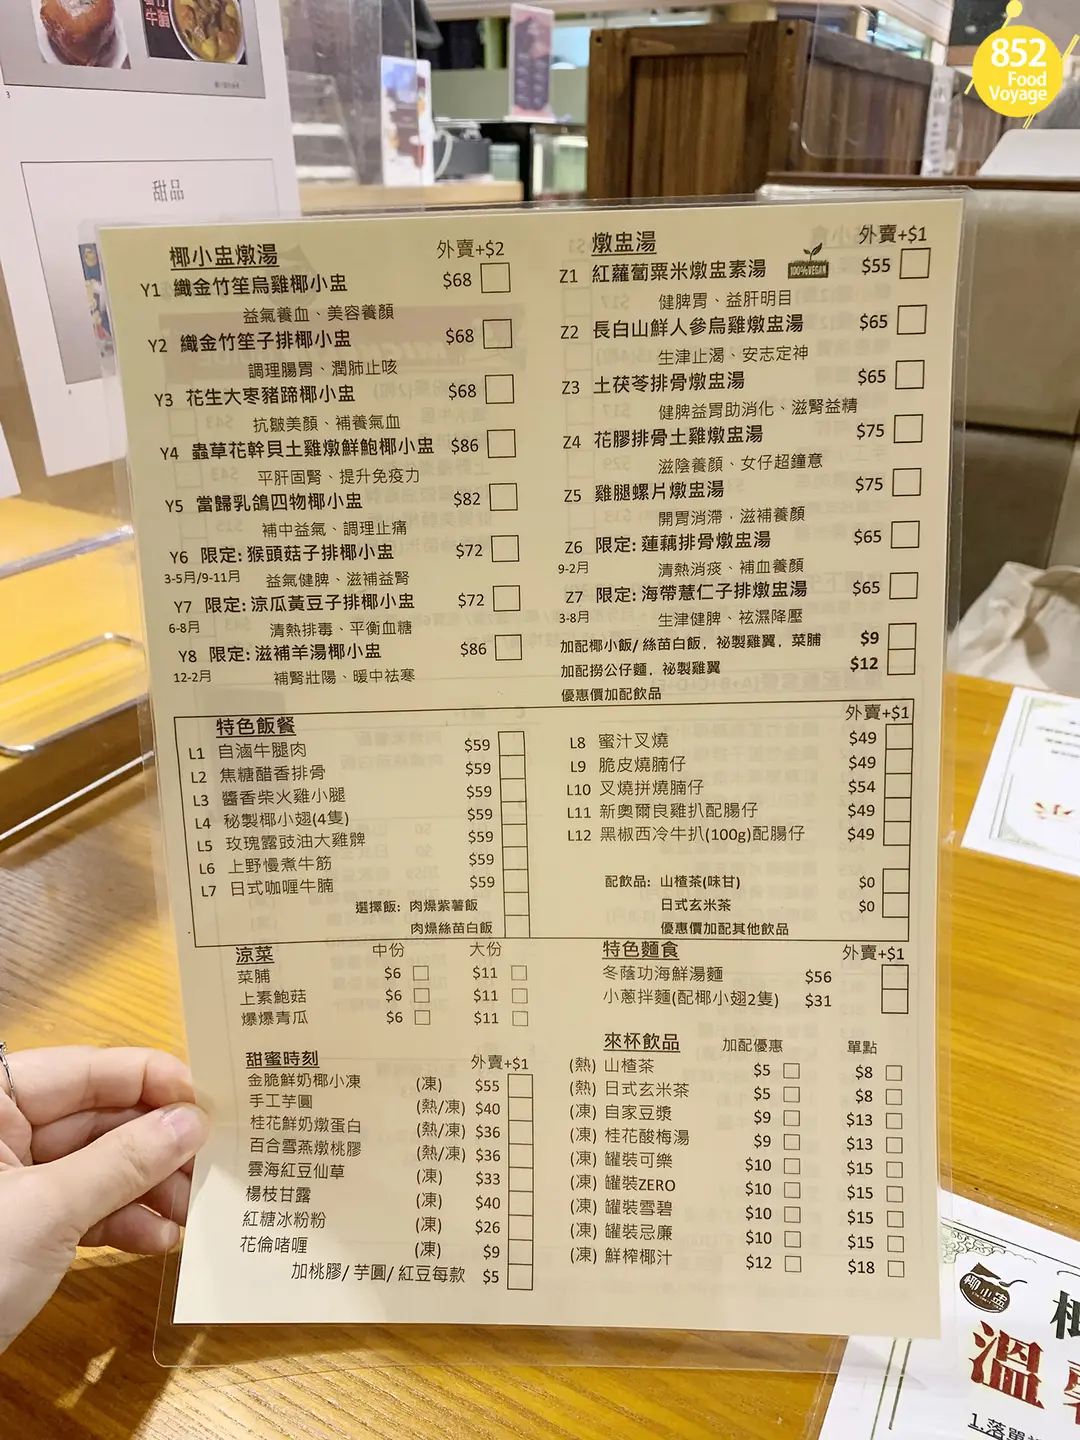 852
Food
Voyage
牛
甜品
椰小盅燉湯 外賣+$2
Y1 織金竹笙烏雞椰小盅 $68
益氣養血、美容養顏
Y2 織金竹笙子排椰小盅 $68
調理腸胃、潤肺止咳
Y3 花生大枣豬蹄椰小盅 $68
抗皺美顏、補養氣血
Y4 蟲草花幹貝土雞燉鮮鮑椰小盅 $86
平肝固腎、提升免疫力
Y5 當歸乳鴿四物椰小盅 $82
補中益氣、調理止痛
Y6 限定: 猴頭菇子排椰小盅 $72
3-5月/9-11月 益氣健脾、滋補益腎
Y7 限定: 涼瓜黃豆子排椰小盅 $72
6-8月 清熱排毒、平衡血糖
Y8 限定: 滋補羊湯椰小盅 $86
12-2月 補腎壯陽、暖中祛寒
燉盅湯 外賣+$1
Z1 紅蘿蔔粟米燉盅素湯 100%VEGAN $55
健脾胃、益肝明目
Z2 長白山鮮人參烏雞燉盅湯 $65
生津止渴、安志定神
Z3 土茯苓排骨燉盅湯 $65
健脾益胃助消化、滋腎益精
Z4 花膠排骨土雞燉盅湯 $75
滋陰養顏、女仔超鐘意
Z5 雞腿螺片燉盅湯 $75
開胃消滯，滋補養顏
Z6 限定: 蓮藕排骨燉盅湯 $65
9-2月 清熱消痰、補血養顏
Z7 限定: 海帶薏仁子排燉盅湯 $65
3-8月 生津健脾、袪濕降壓
加配椰小飯/ 絲苗白飯，祕製雞翼，菜脯 $9
加配撈公仔麵，祕製雞翼 $12
優惠價加配飲品
特色飯餐
L1 自滷牛腿肉 $59
L2 焦糖醋香排骨 $59
L3 醬香柴火雞小腿 $59
L4 秘製椰小翅(4隻) $59
L5 玫瑰露豉油大雞髀 $59
L6 上野慢煮牛筋 $59
L7 日式咖喱牛腩 $59
選擇飯: 肉燥紫薯飯
肉燥絲苗白飯
外賣+$1
L8 蜜汁叉燒 $49
L9 脆皮燒腩仔 $49
L10 叉燒拼燒腩仔 $54
L11 新奧爾良雞扒配腸仔 $49
L12 黑椒西冷牛扒(100g)配腸仔 $49
配飲品: 山楂茶(味甘) $0
日式玄米茶 $0
優惠價加配其他飲品
涼菜 中份 大份
菜脯 $6 $11
上素鮑菇 $6 $11
爆爆青瓜 $6 $11
特色麵食 外賣+$1
冬蔭功海鮮湯麵 $56
小蔥拌麵(配椰小翅2隻) $31
甜蜜時刻 外賣+$1
金脆鮮奶椰小凍 (凍) $55
手工芋圓 (熱/凍) $40
桂花鮮奶燉蛋白 (熱/凍) $36
百合雪燕燉桃膠 (熱/凍) $36
雲海紅豆仙草 (凍) $33
楊枝甘露 (凍) $40
紅糖冰粉粉 (凍) $26
花倫啫喱 (凍) $9
加桃膠/ 芋圓/ 紅豆每款 $5
來杯飲品 加配優惠 單點
(熱) 山楂茶 $5 $8
(熱) 日式玄米茶 $5 $8
(凍) 自家豆漿 $9 $13
(凍) 桂花酸梅湯 $9 $13
(凍) 罐裝可樂 $10 $15
(凍) 罐裝ZERO $10 $15
(凍) 罐裝雪碧 $10 $15
(凍) 罐裝忌廉 $10 $15
(凍) 鮮榨椰汁 $12 $18
椰小盅
溫
1.落單